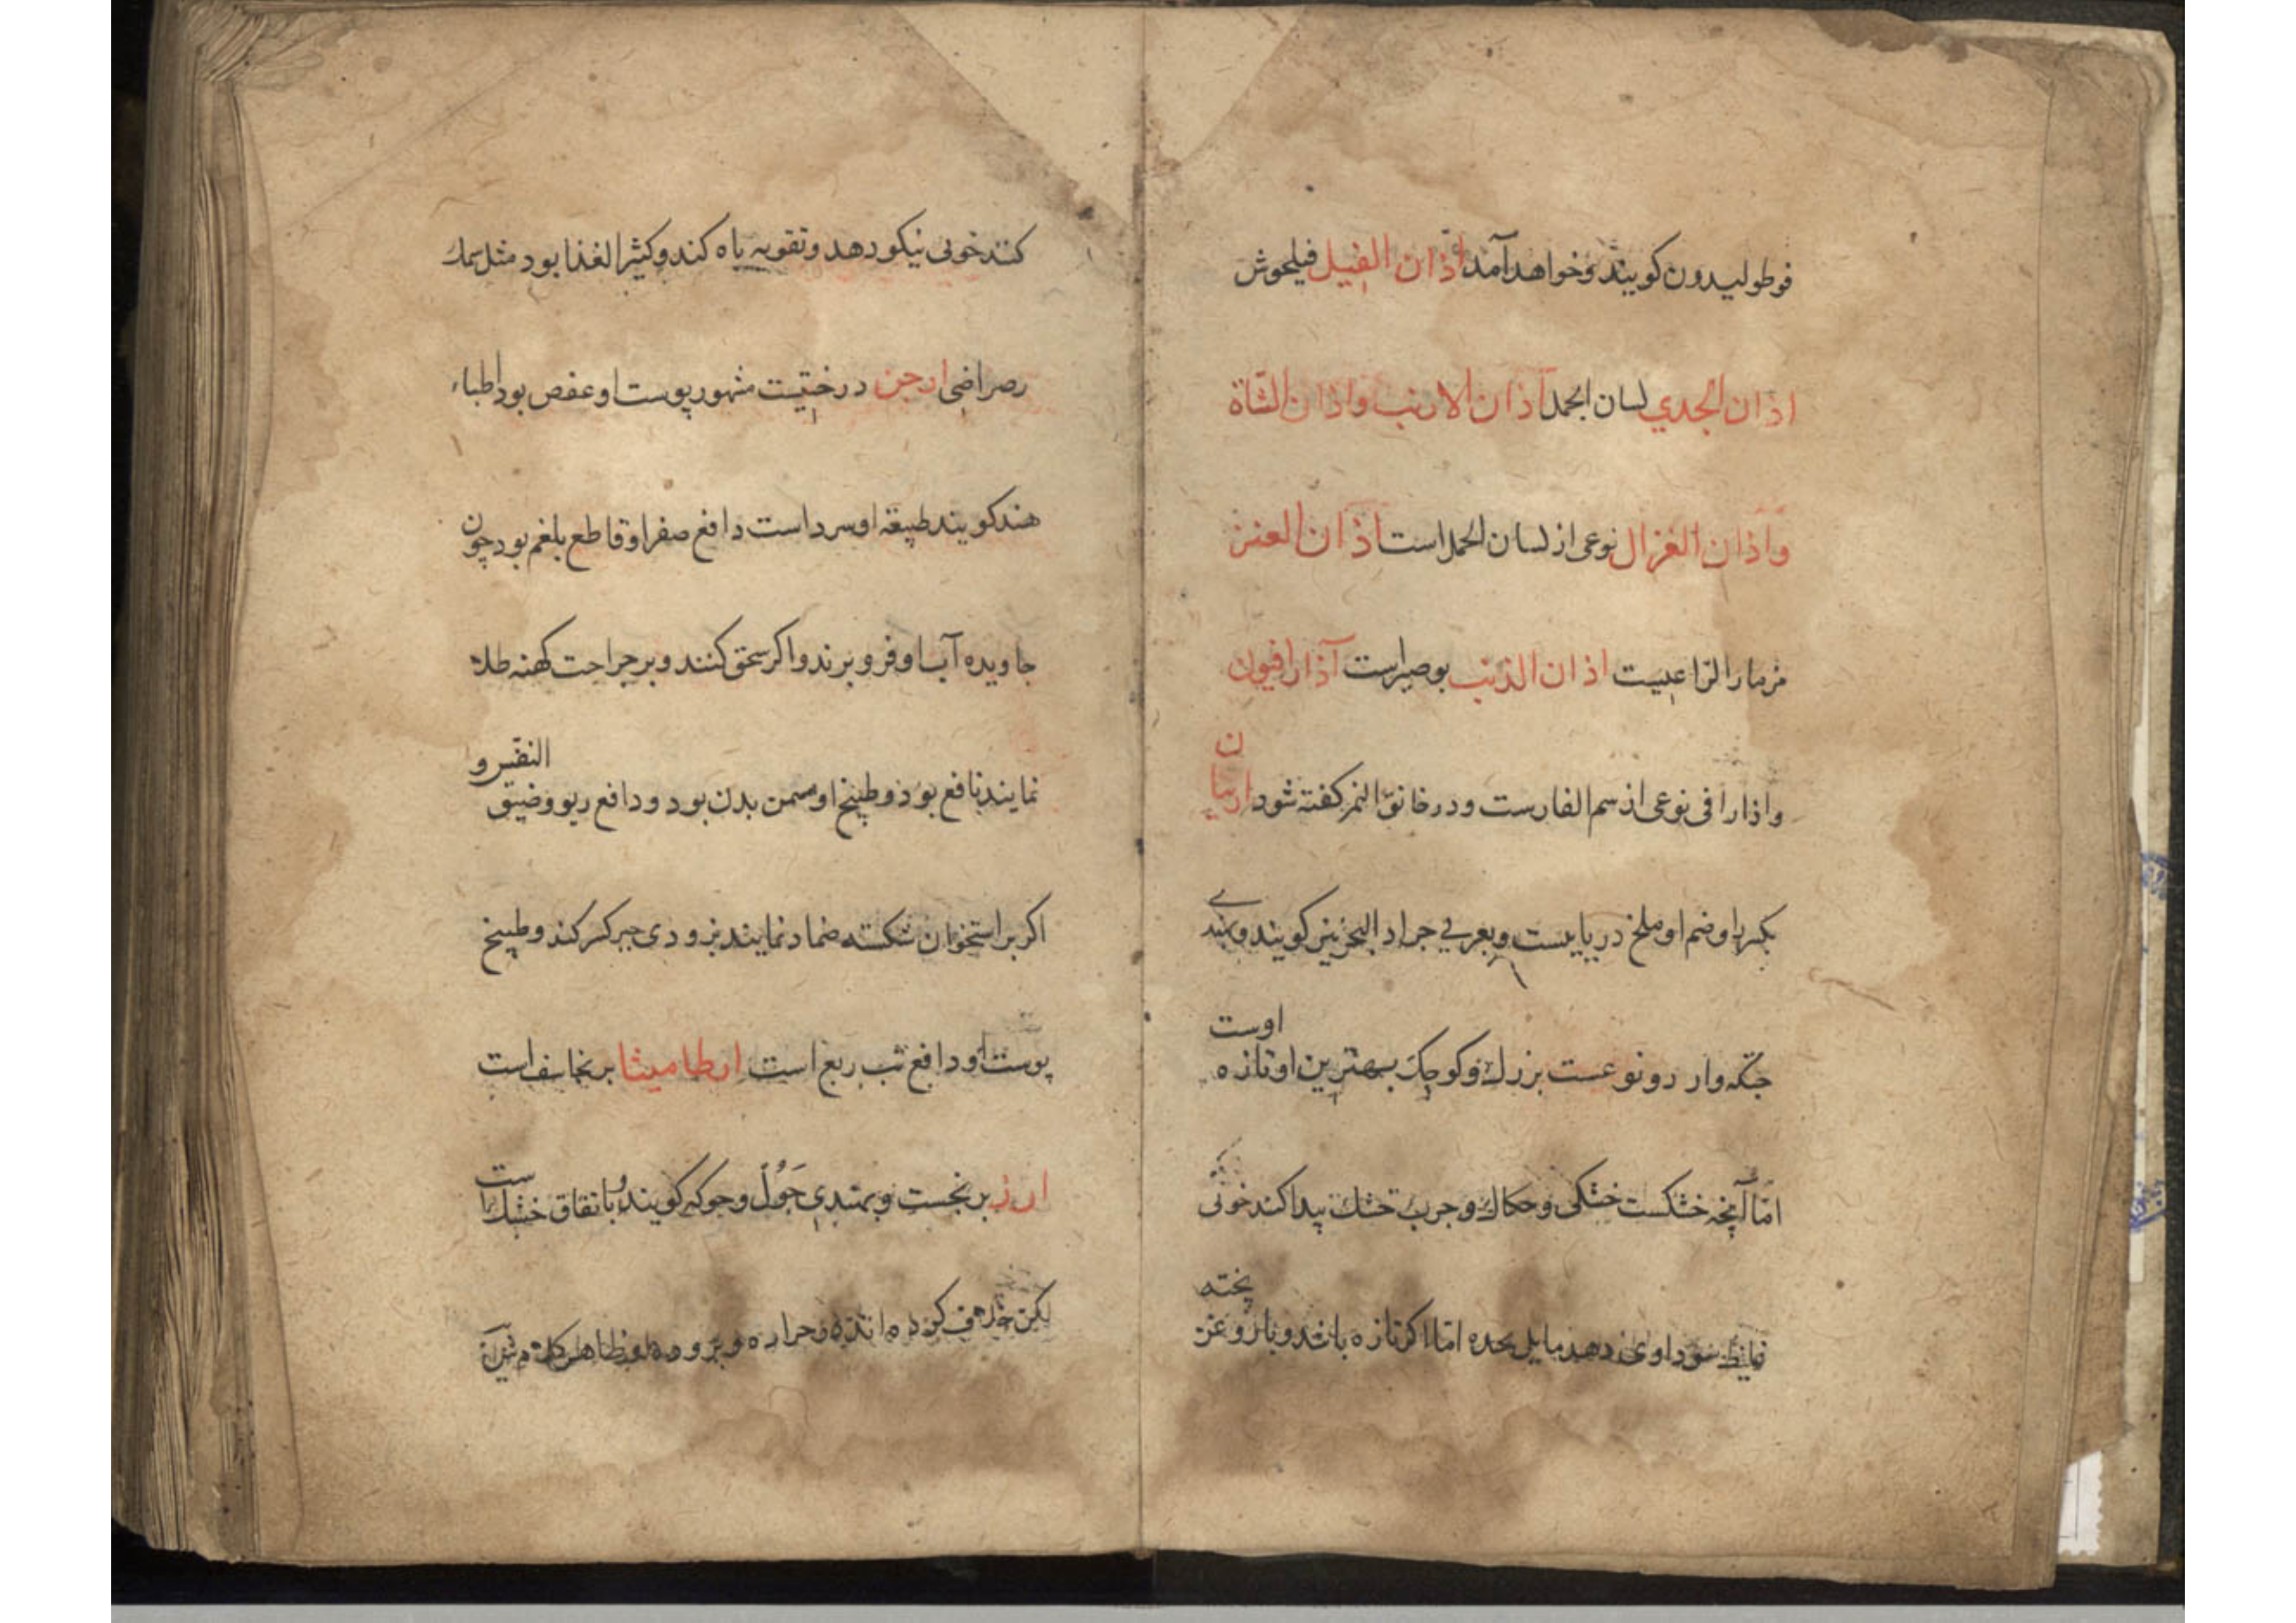 فوطولیدون کویند وخواهد آمد اذان الفیل فیلجوش
اذان الجدي لسان الحمل آذان الارنب واذان الشاة
واذان الغزال نوعی از لسان الحمل است اذان العنز
مزمار الراعیست اذان الدب بوصیراست آذارافیون
واذارافی نوعی از سم الفارست ودر خانق النمر کفته شود اربیان
بکسر با وضم او ملخ دریایست وبعربی جراد البحر نیز کویند وبهندی
جنکه وار دو نوعست بزرك وکوچك بهترین او تازه اوست
امّا آنچه خشکست خشکی وحکاك وجرب خشك پیدا کند خونی
شود اوی دهد مایل بحده امّا اکر تازه باشد وبا روغن پخته
کنند خونی نیکو دهد وتقویه باه کند وکثیر الغذا بود مثل سمك
رصراضی ارجن درختیست مشهور پوست او عفص بود اطباء
هند کویند طبیعة او سرد است دافع صفرا وقاطع بلغم بود چون
جاویده آب او فرو برند واکر سحق کنند وبر جراحت کهنه طلا
نمایند نافع بود وطبیخ او مسمن بدن بود ودافع ربو وضیق النفس و
اکر بر استخوان شکسته ضماد نمایند بزودی جبر کسر کند وطبیخ
پوست او دافع تب ربع است ارطامیثا برنجاسف است
ارز برنجست وبهندی جول وجوکه کویند وباتفاق خشك است
لیکن خلاف کرده اند در حراره وبروده وظاهر کلام